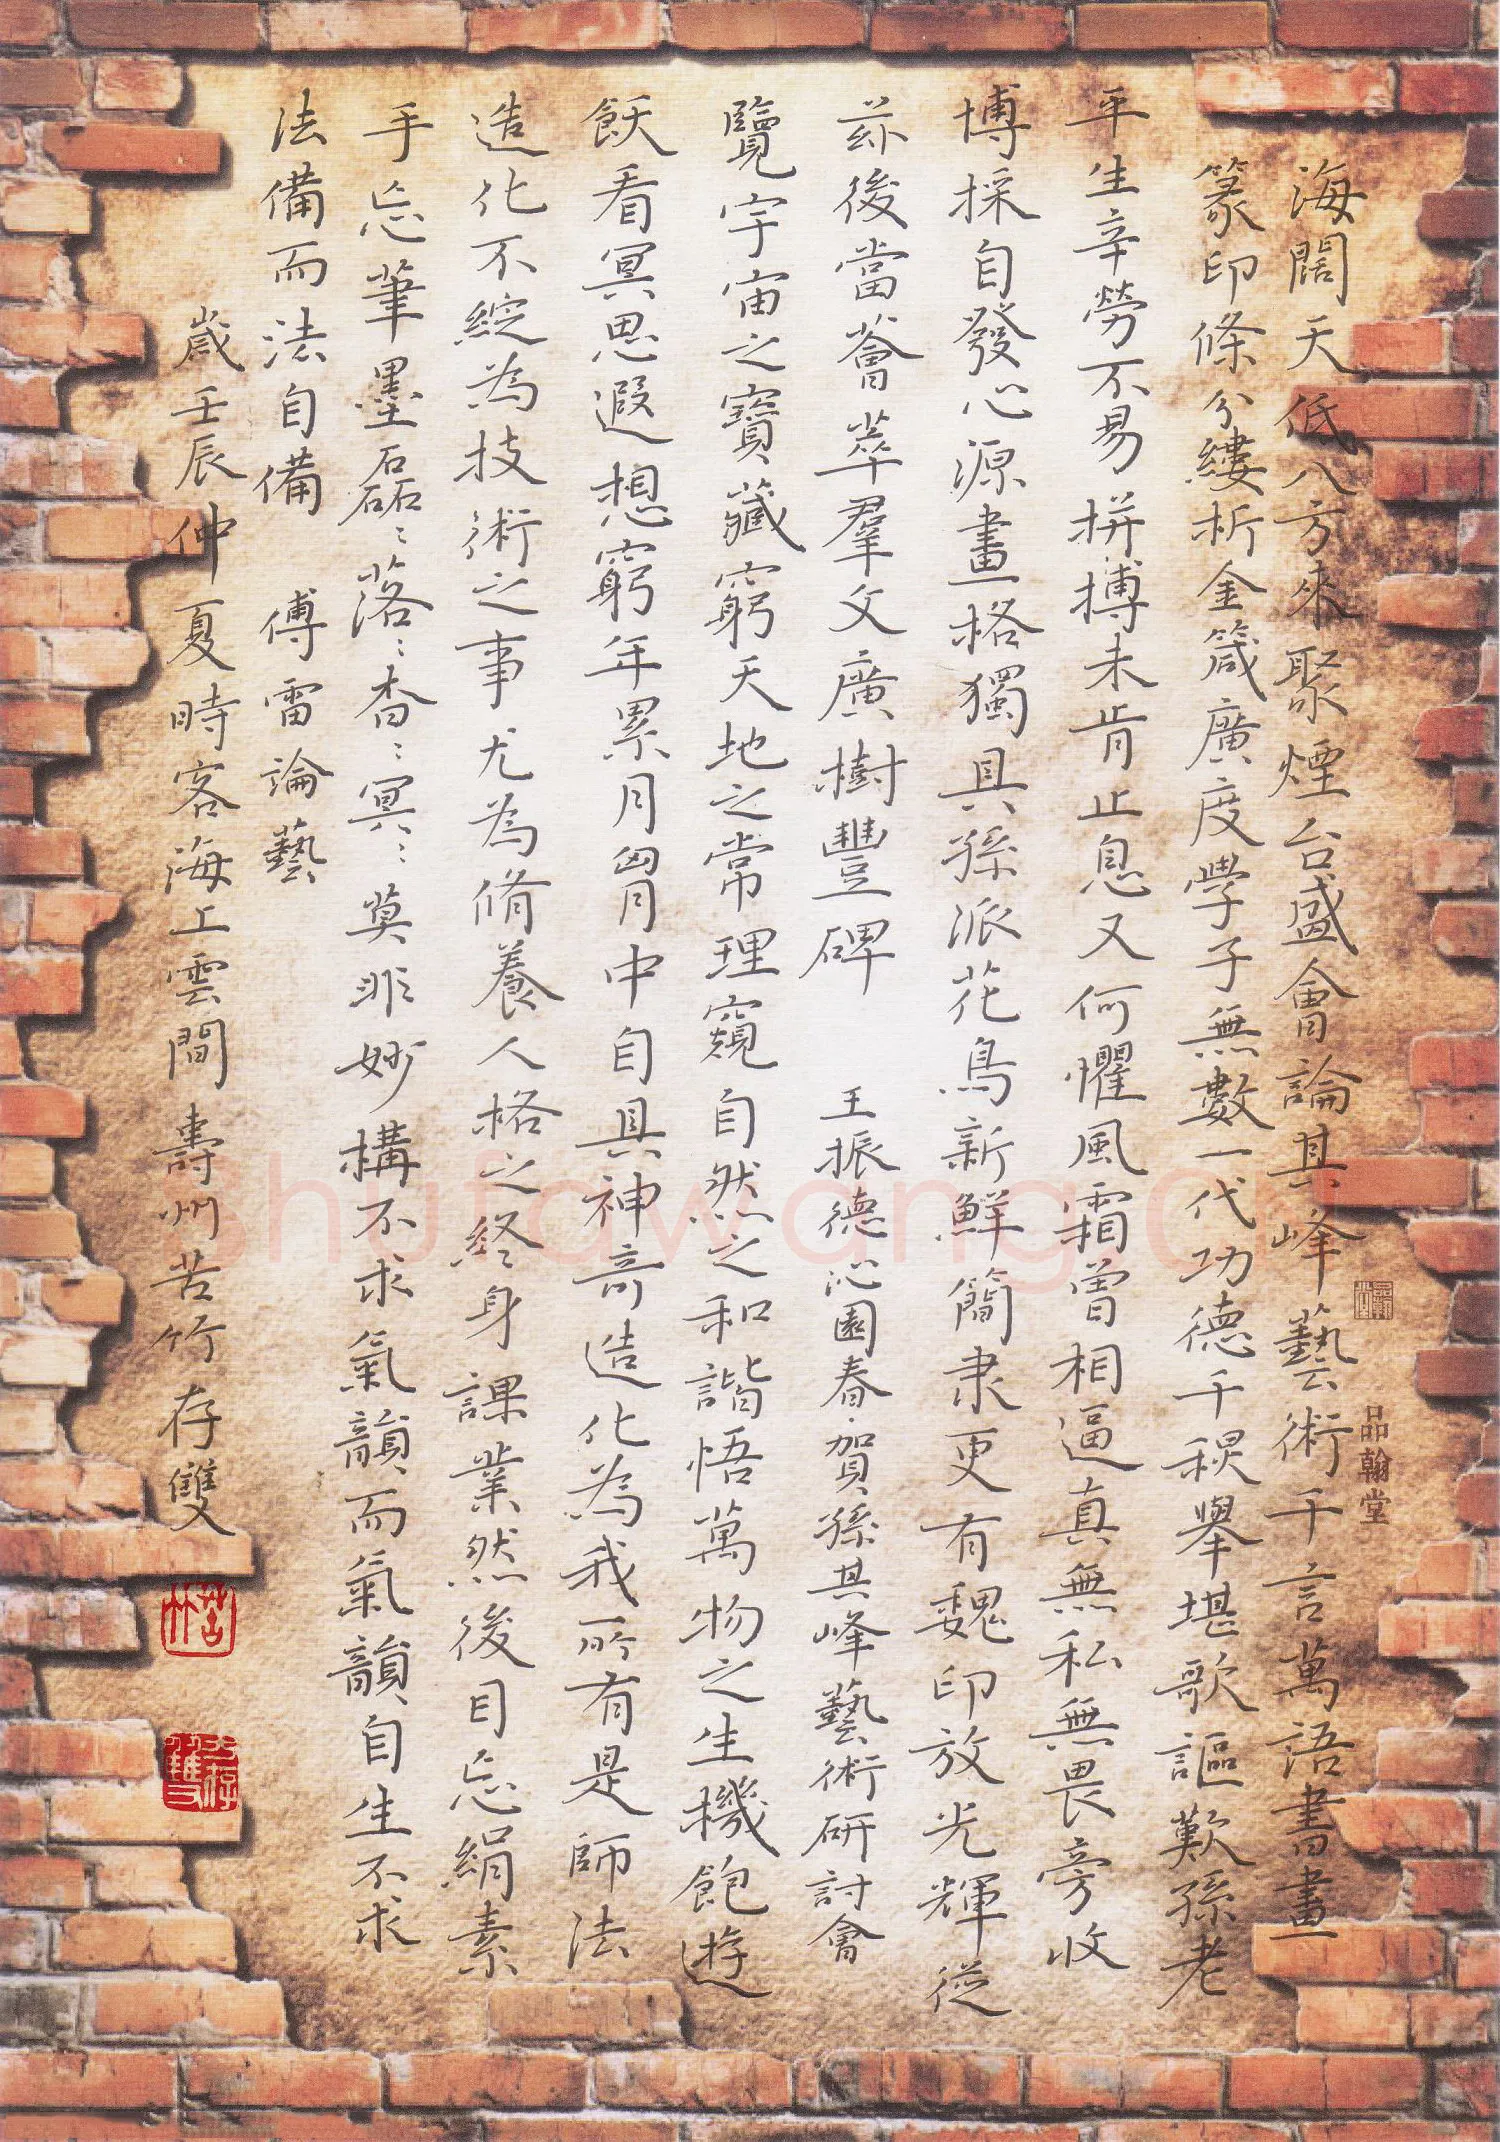 海闊天低八方來聚煙台盛會論其峰藝術千言萬語書畫
篆印條分縷析金箴廣度學子無數一代功德千秋舉堪歌謳歎孫老
平生辛勞不易拼搏未肯止息又何懼風霜曾相逼真無私無畏旁收
博採自發心源畫格獨具孫派花鳥新鮮簡隶更有魏印放光輝從
茲後當薈萃羣文廣樹豐碑 王振德沁園春·賀孫其峰藝術研討會
覽宇宙之寶藏窮天地之常理窺自然之和諧悟萬物之生機飽遊
飫看冥思遐想窮年累月胷中自具神奇造化為我所有是師法
造化不綻為技術之事尤為脩養人格之終身課業然後目忘絹素
手忘筆墨磊:落:杳:冥:莫非妙構不求氣韻而氣韻自生不求
法備而法自備 傅雷論藝
歲壬辰仲夏時客海上雲間壽州苦竹存雙
品翰堂
苦竹
存雙
shufawang.cn